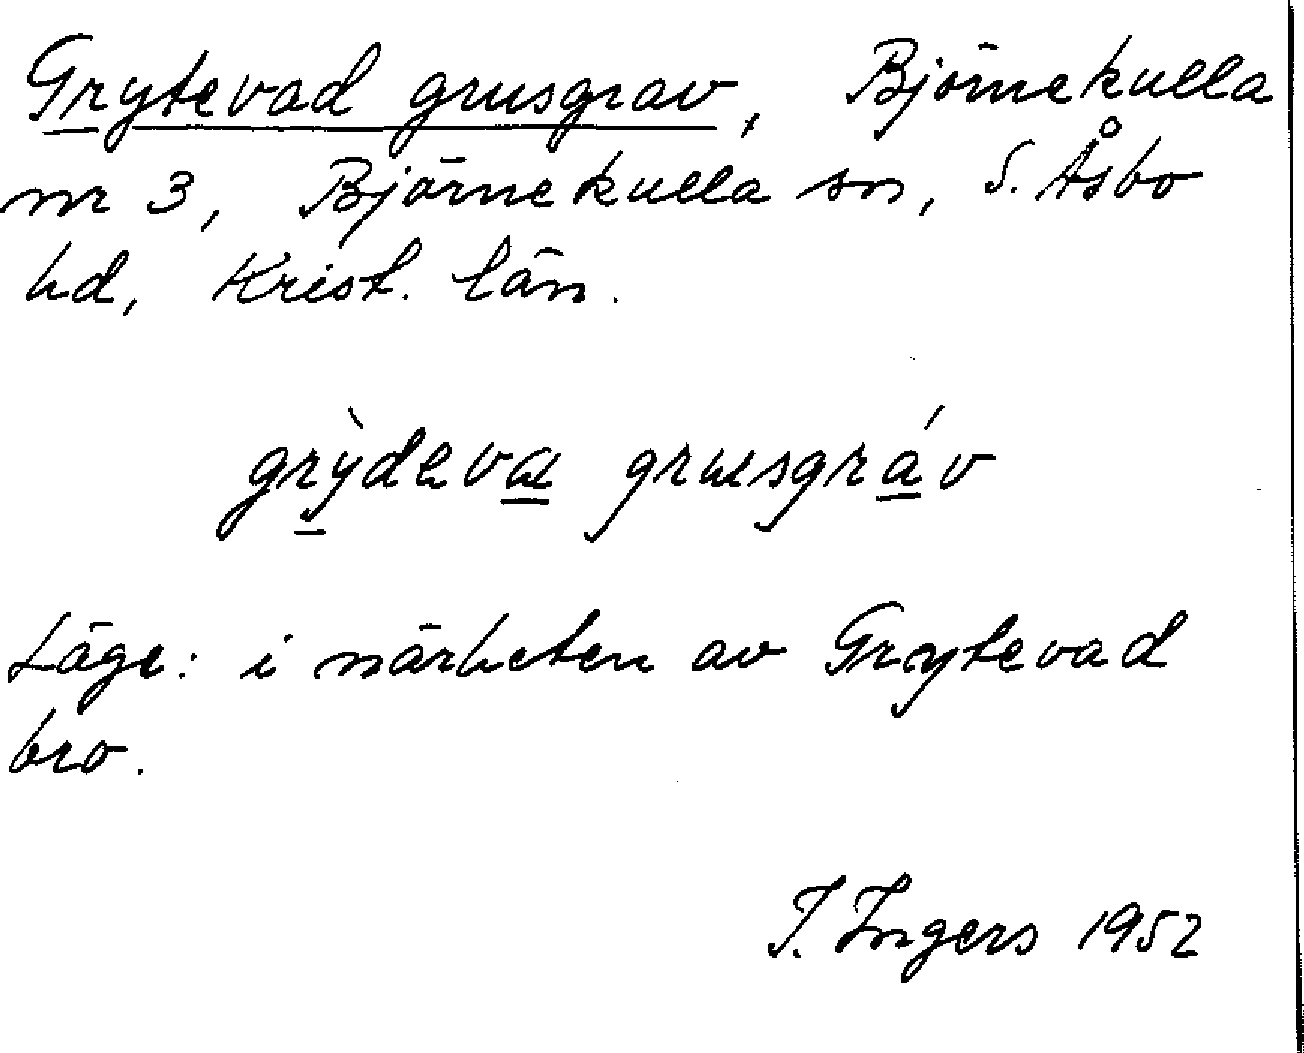 Grytevad grusgrav, Björnekulla
nr 3, Björnekulla sn, S. Åsbo
hd, Krist. län.
grỳdeva grusgráv
Läge: i närheten av Grytevad
bro.
I. Ingers 1952